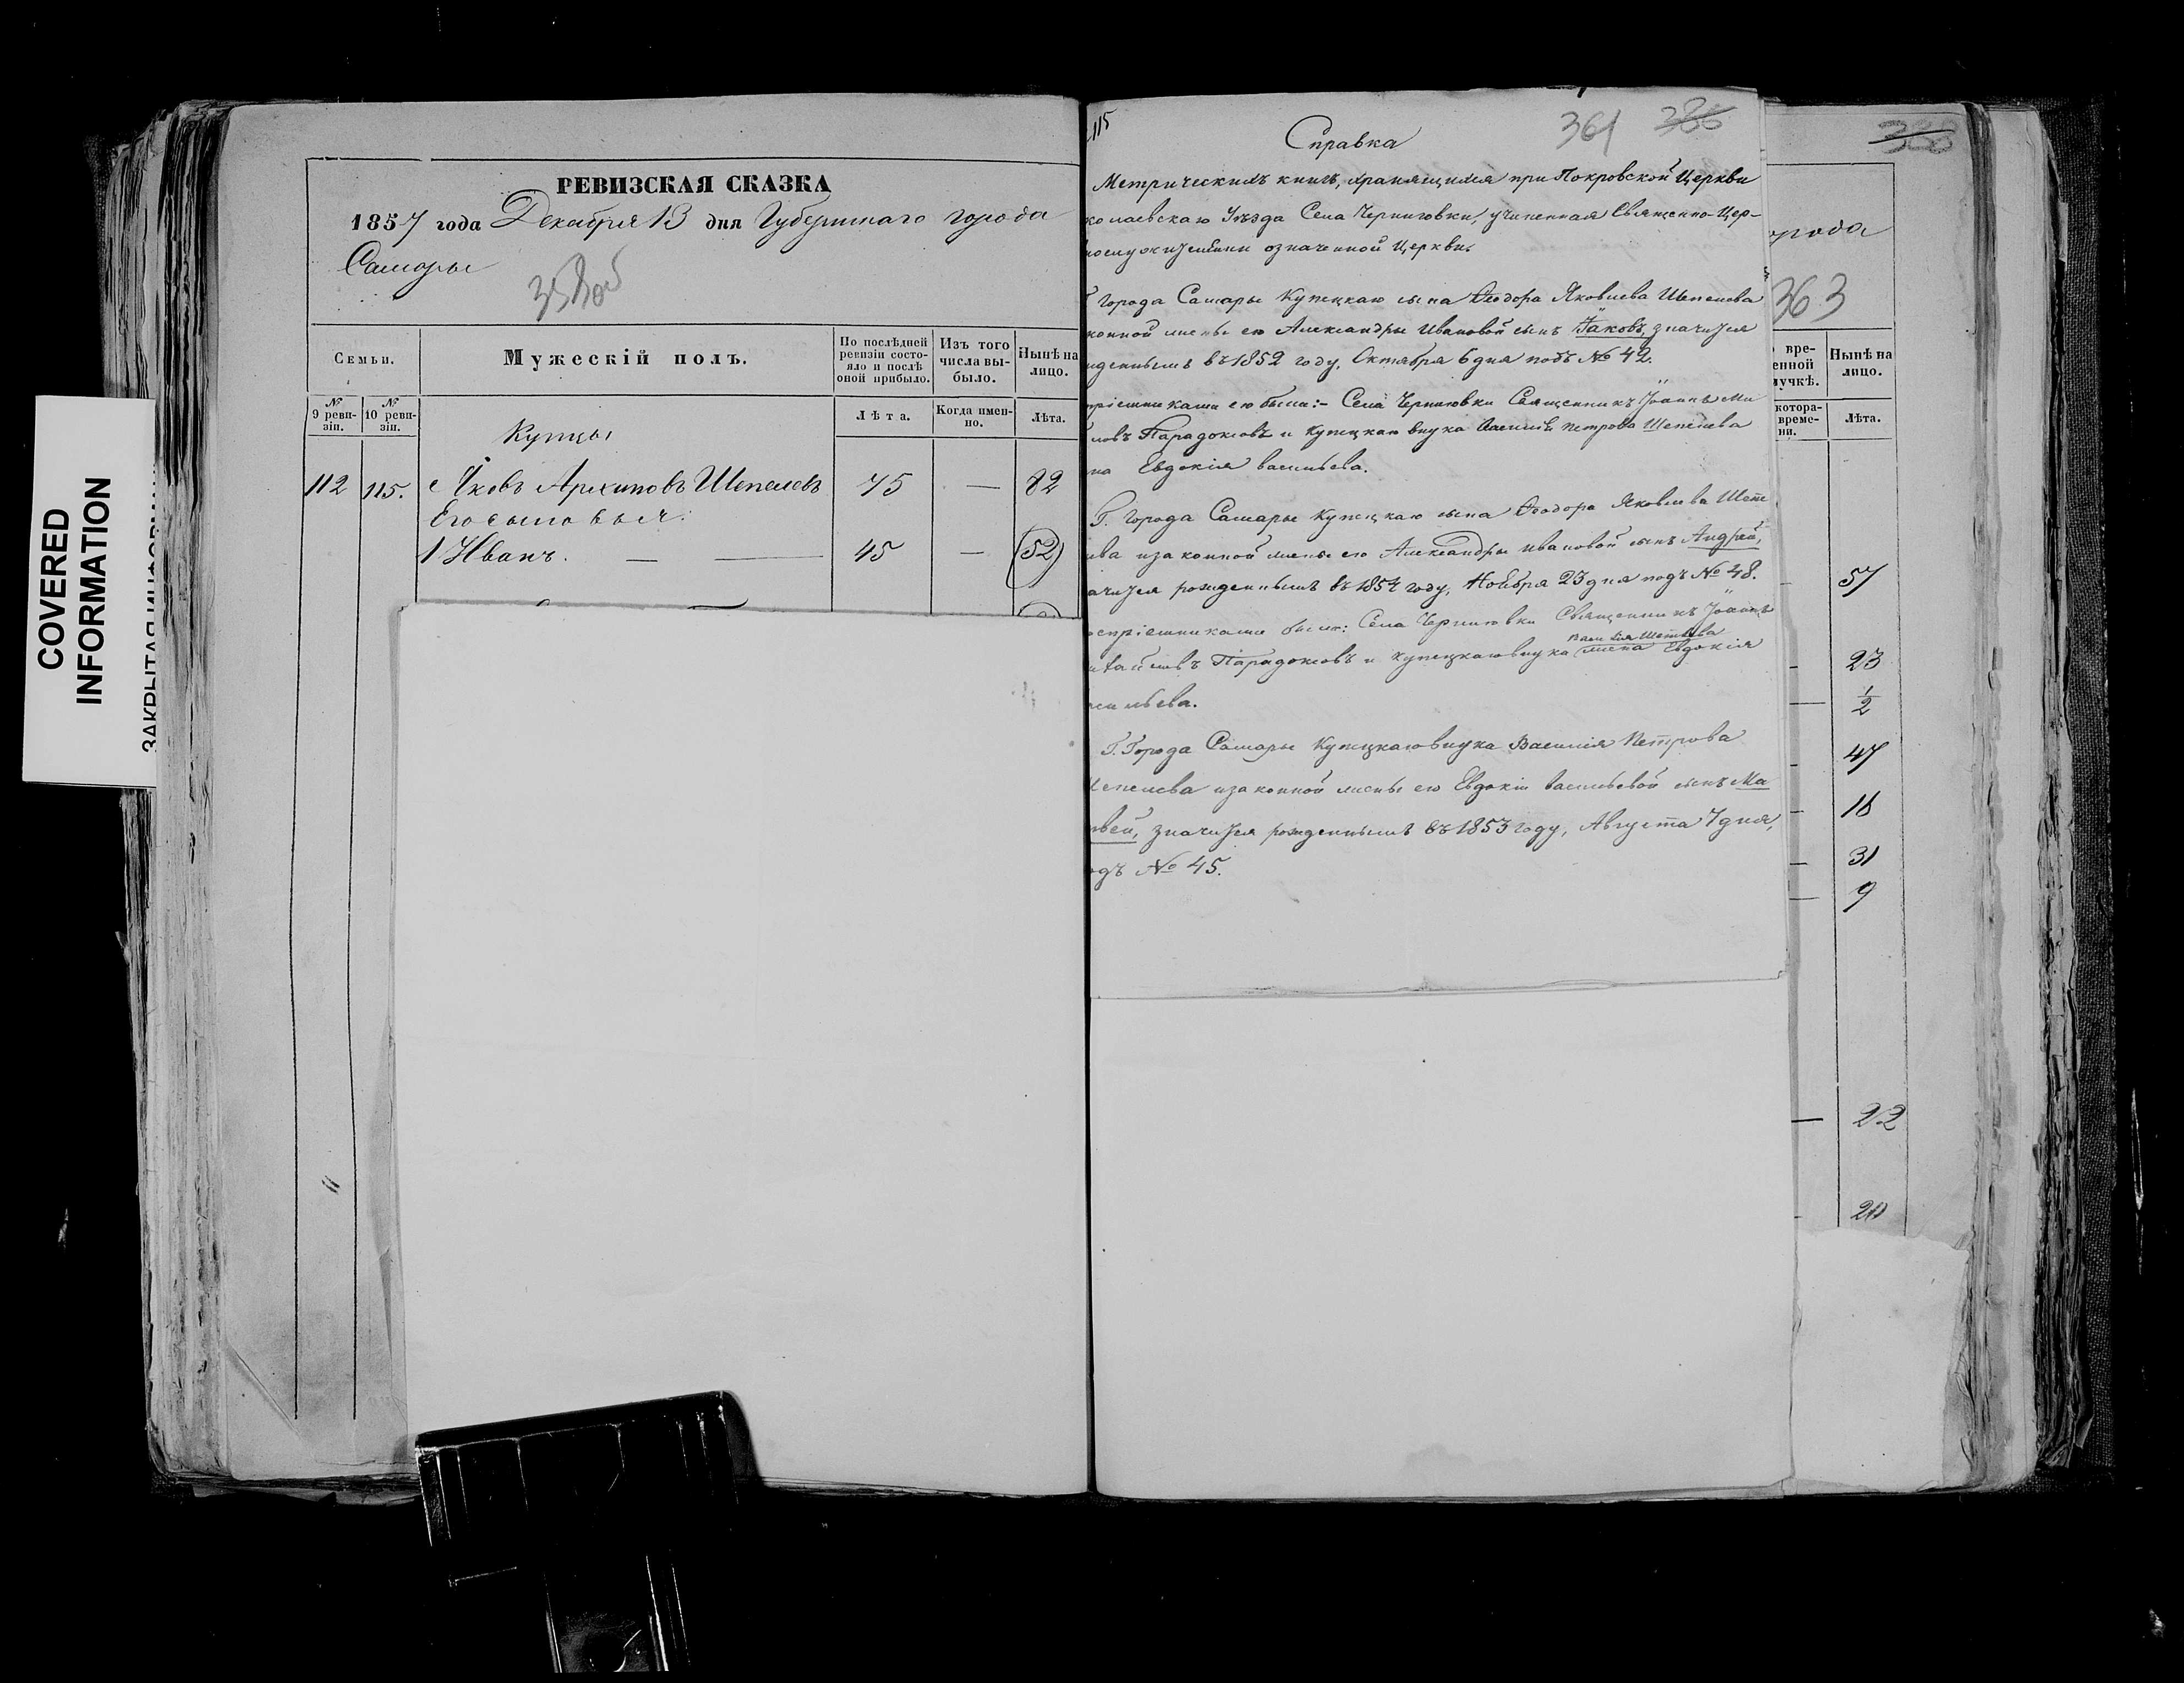 COVERED
INFORMATION
РЕВИЗСКАЯ СКАЗКА
1857 года Декабря 13 дня Губернскаго города
Самары
Семьи.
Мужескій полъ.
По послѣдней ревизіи состояло и послѣ оной прибыло.
Изъ того числа выбыло.
Нынѣ на лицо.
№ 9 ревизіи.
№ 10 ревизіи.
Лѣта.
Когда именно.
Лѣта.
Купцы
112 115. Яковъ Архиповъ Шепелевъ 75 — 82
Его сыновья:
1 Иванъ. — — 45 — (52)
115
361 386
Справка
Метрическихъ книгъ, хранящихся при Покровской Церкви
колаевскаго Уѣзда Села Черниговки, учиненная Священно-Цер-
нослужителями означенной Церкви.
Города Самары Купецкаго сына Ѳеодора Яковлева Шепелева
конной жены его Александры Ивановой сынъ Іаковъ, значится
жденнымъ въ 1852 году, Октября 6 дня подъ № 42.
пріемниками его были:- Села Черниговки Священникъ Іоаннъ Ми
ловъ Парадоксовъ и Купецкаго внука Василія Петрова Шепелева
на Евдокія Васильева.
Г. Города Самары Купецкаго сына Ѳеодора Яковлева Шепе
лева и законной жены его Александры Ивановой сынъ Андрей,
ачится рожденнымъ въ 1854 году, Ноября 23 дня подъ № 48.
оспріемниками были: Села Черниговки Священникъ Іоаннъ
Василія Шепелева
ихайловъ Парадоксовъ и купецкаго внука жена Евдокія
сильева.
Г. Города Самары Купецкаго внука Василія Петрова
Шепелева и законной жены его Евдокіи Васильевой сынъ Ма
твей, значится рожденнымъ въ 1853 году, Августа 7 дня,
одъ № 45.
388
орода
363
вре-
енной
лучкѣ.
Нынѣ на
лицо.
котора-
време-
ни.
Лѣта.
57
23
1/2
47
16
31
9
22
20